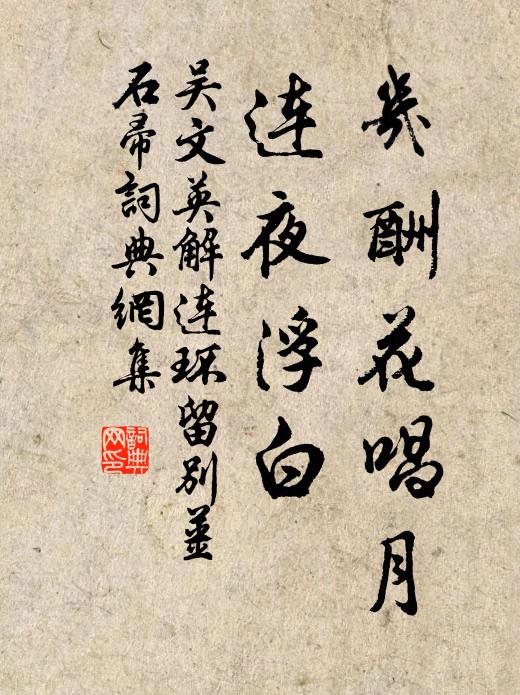 幾酬花唱月
連夜浮白
吴文英解连环留别姜
石帚詞典網集
詞典网印